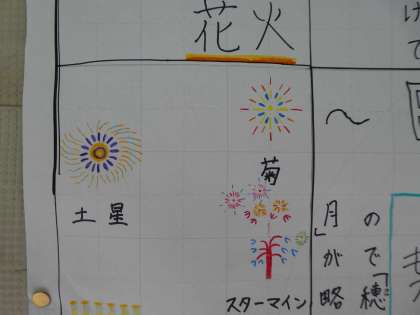 花火
菊
土星
スターマイン
〜
月」が略
ので「穂
け
て